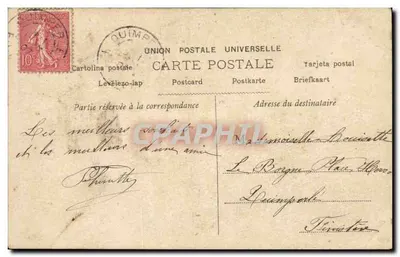 10
QUIMP
UNION POSTALE UNIVERSELLE
CARTE POSTALE
Cartolina postale
Tarjeta postal
Levelezo-lap
Postcard
Postkarte
Briefkaart
Partie réservée à la correspondance
Adresse du destinataire
CPAPHIL
Les meilleurs
et les meilleurs d'une amie
Mademoiselle
Le Borgne Place
Quimperlé
Finistère